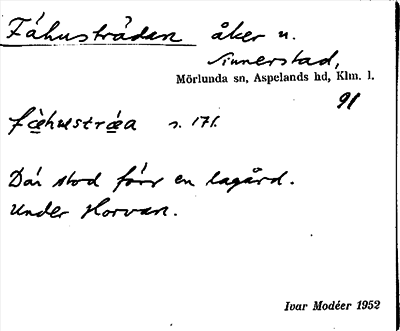 Fähusträdan åker u.
Sinnerstad,
Mörlunda sn, Aspelands hd, Klm. l.
91
fähusträa s. 171.
Där stod förr en lagård.
Under Horvan.
Ivar Modéer 1952